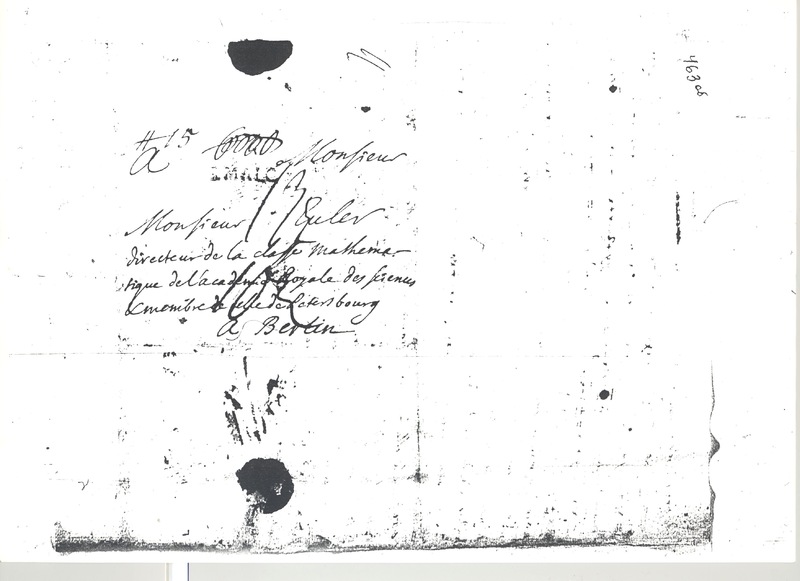 463 ob
A Monsieur
Monsieur Euler
directeur de la classe mathema-
tique de l'academie Royale des sciences
& membre de celle de Petersbourg
A Berlin